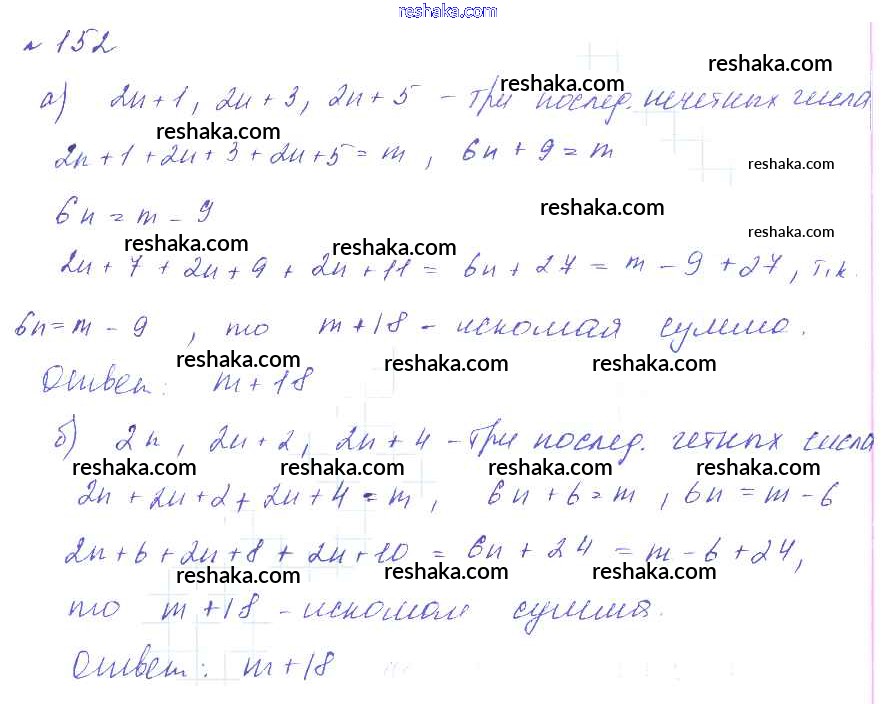 reshaka.com
№ 152
reshaka.com
а) 2n+1, 2n+3, 2n+5 - три послед. нечетных числа
reshaka.com
reshaka.com
2n+1+2n+3+2n+5=m, 6n+9=m
reshaka.com
6n=m-9
reshaka.com
reshaka.com
reshaka.com
reshaka.com
2n+7+2n+9+2n+11=6n+27=m-9+27, т.к.
6n=m-9, то m+18 - искомая сумма.
reshaka.com reshaka.com reshaka.com
Ответ: m+18
б) 2n, 2n+2, 2n+4 - три послед. четных числа
reshaka.com reshaka.com reshaka.com reshaka.com
2n+2n+2+2n+4=m, 6n+6=m, 6n=m-6
2n+6+2n+8+2n+10=6n+24=m-6+24,
reshaka.com reshaka.com reshaka.com
то m+18 - искомая сумма.
Ответ: m+18